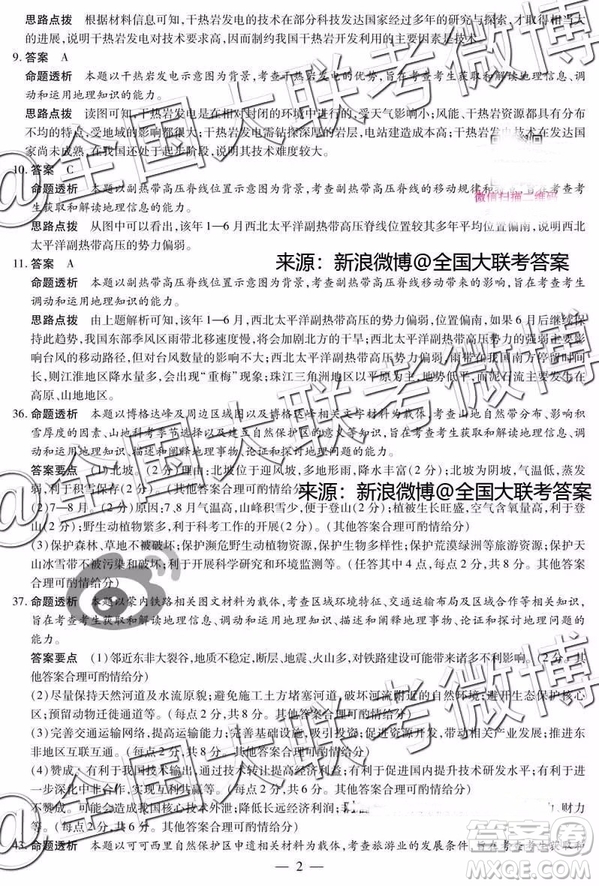 思路点拨 根据材料信息可知,干热岩发电的技术在部分科技发达国家经过多年的研究与探索,才取得相当大
的进展,说明干热岩发电对技术要求高,因而制约我国干热岩开发利用的主要因素是技术。
9. 答案 A
命题透析 本题以干热岩发电示意图为背景,考查干热岩发电的优势,旨在考查考生获取和解读地理信息、调
动和运用地理知识的能力。
思路点拨 读图可知,干热岩发电是在相对封闭的环境中进行的,受天气影响小;风能、干热岩资源都具有分布
不均的特点,受自然环境的影响大;干热岩发电需钻探深厚的岩层,电站建造成本高;干热岩发电技术在发达国
家尚未成熟,在我国还处于起步阶段,说明其发电量小。
10. 答案 C
命题透析 本题以副热带高压脊线位置示意图为背景,考查副热带高压脊线的移动规律和
生获取和解读地理信息的能力。
微信扫描二维码
思路点拨 从图中可以看出,该年1—6月西北太平洋副热带高压脊线位置较其多年平均位置偏南,说明西北太
平洋副热带高压的势力偏弱。
11. 答案 A
来源: 新浪微博@全国大联考答案
命题透析 本题以副热带高压脊线位置示意图为背景,考查副热带高压脊线移动带来的影响,旨在考查考生
调动和运用地理知识的能力。
思路点拨 由上题解析可知,该年1—6月,西北太平洋副热带高压的势力偏弱,位置偏南,如果6月后继续保
持此趋势,我国东部季风区雨带北移速度慢,将会加剧北方的干旱;西北太平洋副热带高压势力偏弱,会影响台
风的移动路径,但对大风数量影响不大;西北太平洋副热带高压势力偏弱,位置偏南,则雨带在江淮地区停留时
间长,则江淮地区降水量多,或出现“重梅”现象;珠江三角洲地区地形以平原为主,而泥石流主要发生在
高原、山地地区。
36. 命题透析 本题以博格达峰及周边区域图以及博格达峰相关文字材料为载体,考查山地自然带分布、影响积
雪厚度的因素、山地科考季节选择以及自然保护区的建设意义等相关知识,旨在考查考生获取和解读地理信
息、调动和运用地理知识、描述和阐释地理事物、论证和探讨地理问题的能力。
答案要点 (1)北坡。(2分)理由:北坡为迎风坡,多地形雨(雪),降水丰富(2分);北坡为阴坡,气温低,蒸发
弱。(2分)(其他答案合理可酌情给分)
来源: 新浪微博@全国大联考答案
(2)7—8月。(2分)原因:7、8月气温高,山峰积雪少,便于登山(2分);植被生长旺盛,空气含氧量高,利于登
山(2分);野生动植物繁多,利于科考工作的开展(2分)。(其他答案合理可酌情给分)
(3)保护森林、草地不被破坏;保护濒危野生动植物资源,保护生物多样性;保护荒漠绿洲等旅游资源;保护天
山冰雪带不被污染和破坏;利于开展科学研究和环境监测等。(答出其中4点,每点2分,共8分。其他答案合
理可酌情给分)
37. 命题透析 本题以蒙内铁路相关图文材料为载体,考查区域环境特征、交通运输布局与区域发展等相关知识,
旨在考查考生获取和解读地理信息、调动和运用地理知识、描述和阐释地理事物、论证和探讨地理问题的能
力。
答案要点 (1)邻近东非大裂谷,地质不稳定,断层、地震、火山多,对铁路建设不利。(4分)(其他答案合理可
酌情给分)
(2)尽量保持天然河道及水流原貌;避免施工土方堵塞河道,破坏河流附近的自然环境;尽量避开自然保护区核
心区;留出动物迁徙通道等。(每点2分,共8分。其他答案合理可酌情给分)
(3)完善交通运输网络,提高交通运输能力;完善基础设施,吸引投资;促进旅游业发展;扩大就业机会,推进东
非地区互联互通。(每点2分,共8分。其他答案合理可酌情给分)
(4)赞成。有利于我国技术输出,通过技术转让提高经济利益;有利于促进国内提升技术研发水平;有利于进一
步深化中非合作,实现互利共赢等。(每点2分,共6分。其他答案合理可酌情给分)
不赞成。可能造成我国核心技术外泄;降低长远经济利润; 、物力、财力
等。(每点2分,共6分。其他答案合理可酌情给分)
43. 命题透析 本题以可可西里自然保护区申遗相关材料为载体,考查旅游业的发展条件,旨在考查考生获取和
— 2 —
@全国大联考微博
@全国大联考微博
@全国大联考微博
答案圈
MXQE.COM